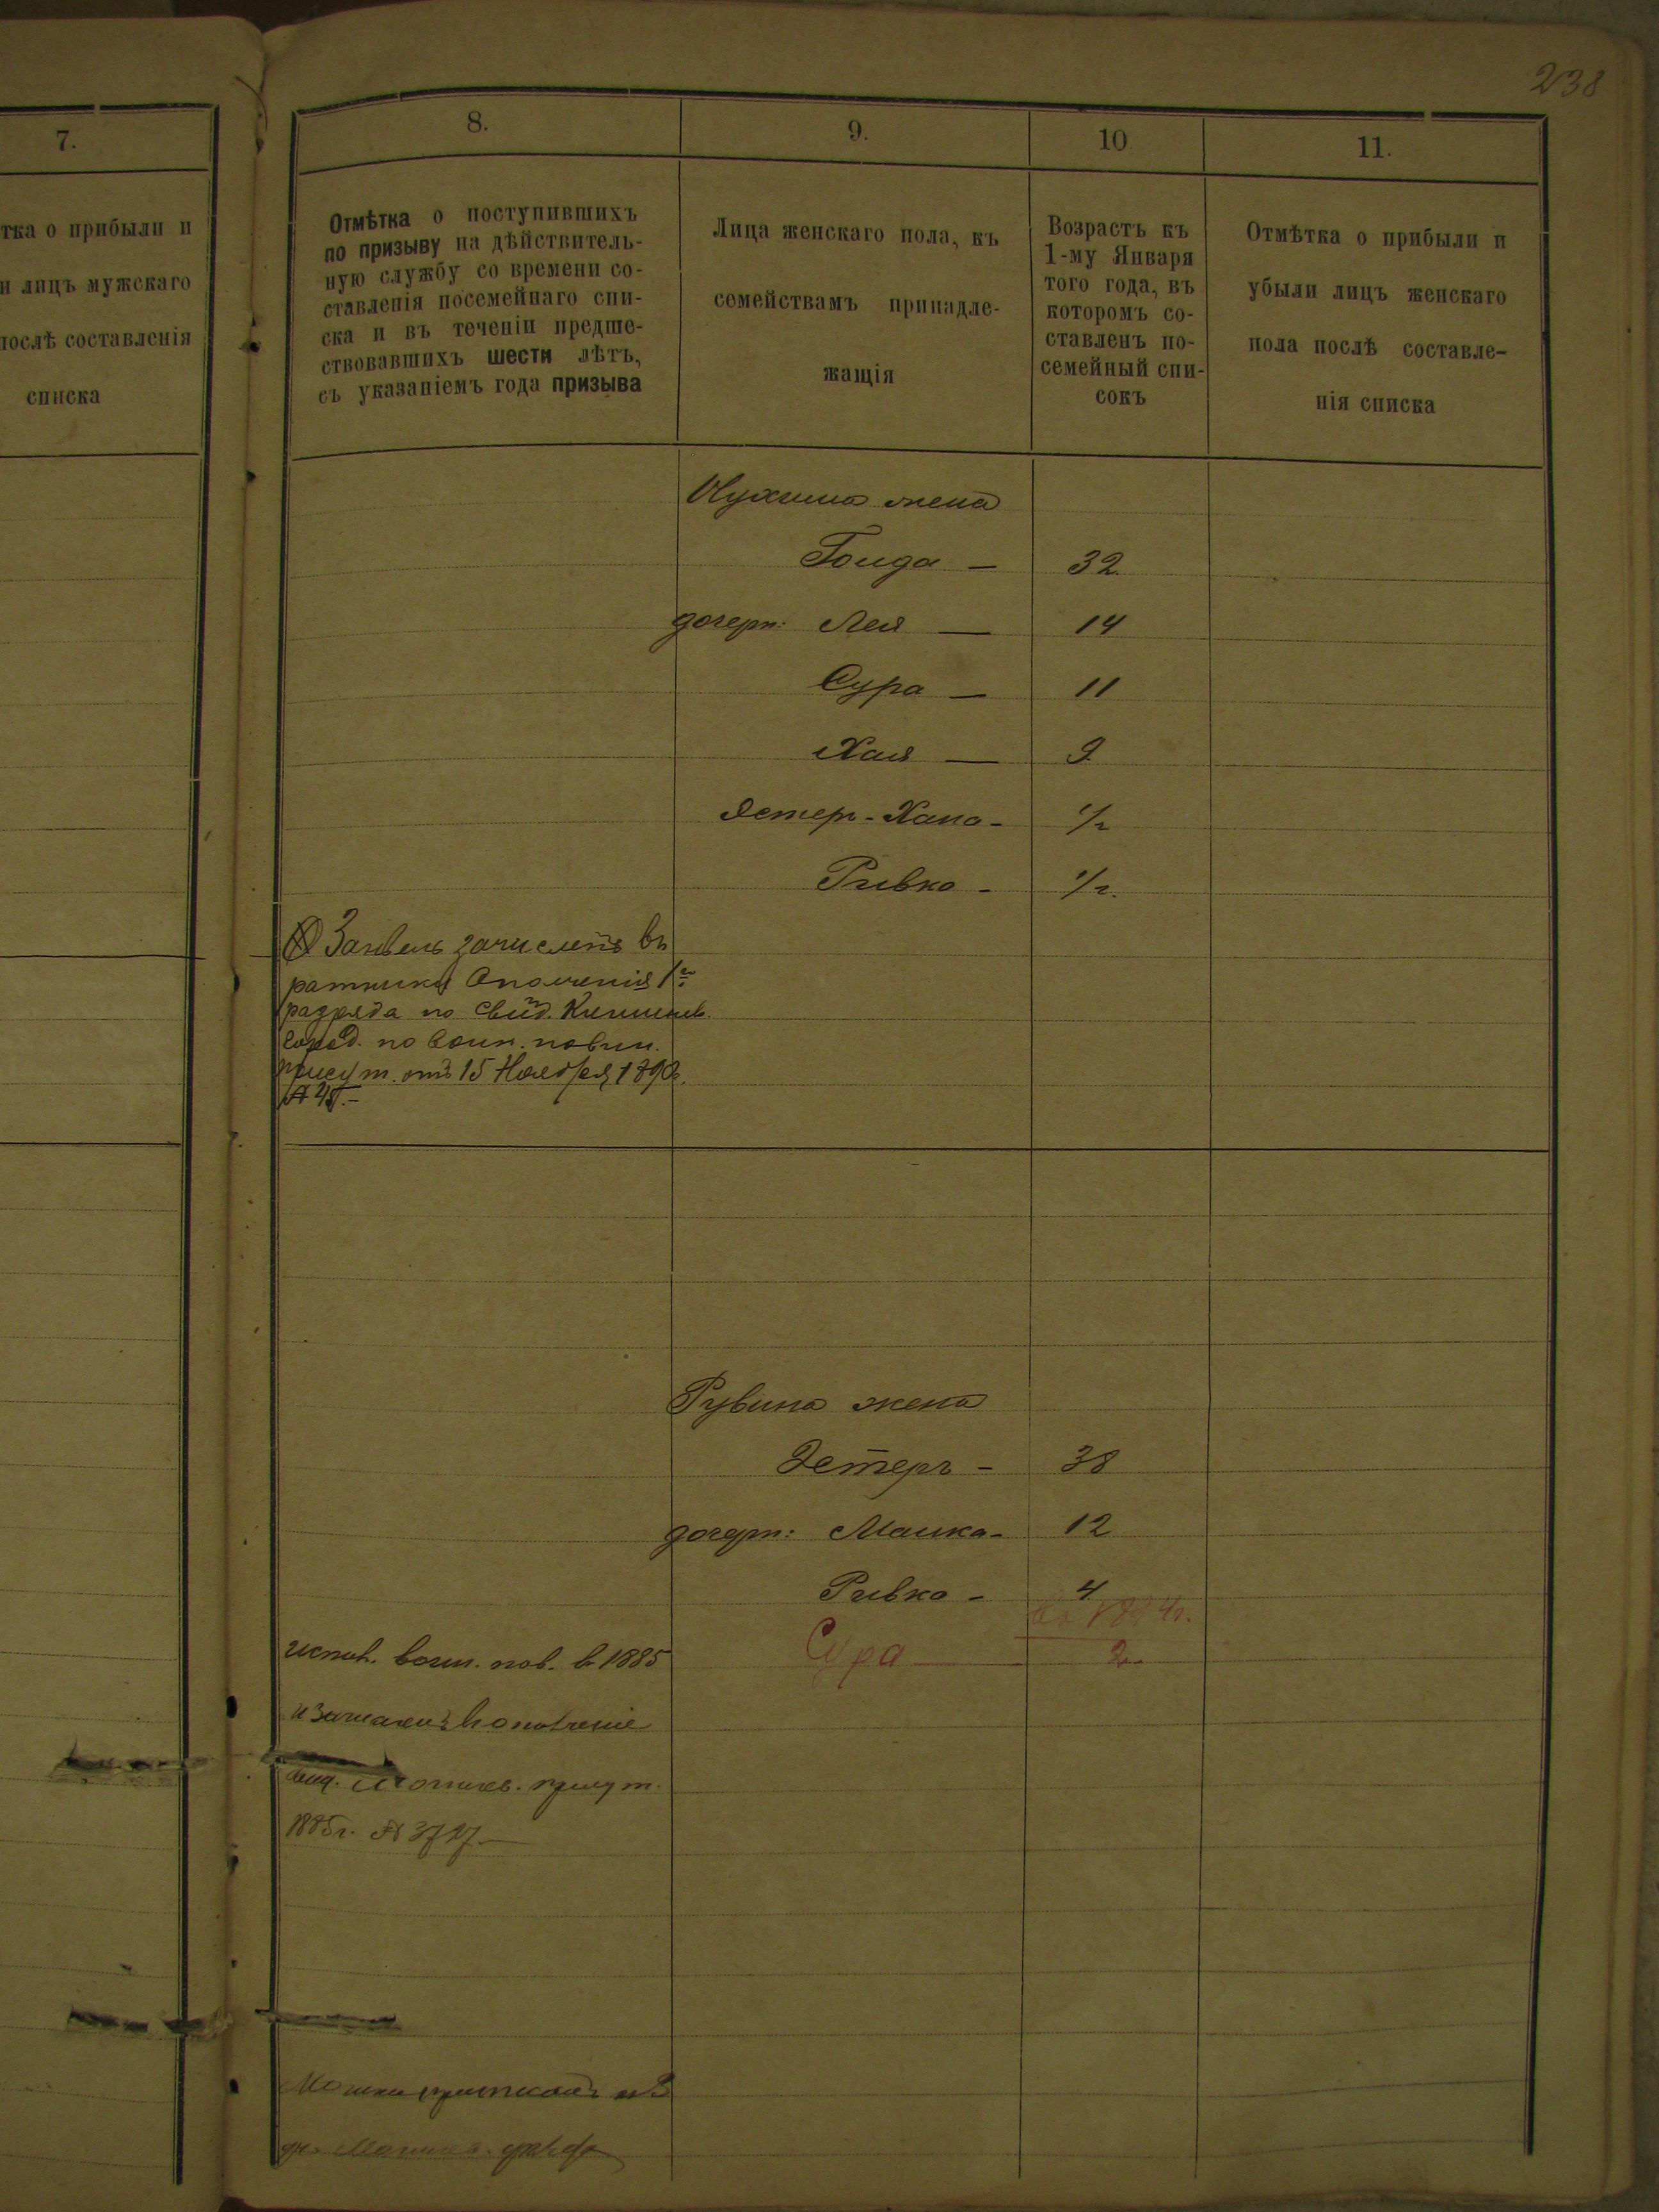 238
7.
тка о прибыли и
и лицъ мужскаго
послѣ составленія
списка
8.
Отмѣтка о поступившихъ
по призыву на дѣйствитель-
ную службу со времени со-
ставленія посемейнаго спи-
ска и въ теченіи предше-
ствовавшихъ шести лѣтъ,
съ указаніемъ года призыва
9.
Лица женскаго пола, къ
семействамъ принадле-
жащія
10
Возрастъ къ
1-му Января
того года, въ
которомъ со-
ставленъ по-
семейный спи-
сокъ
11.
Отмѣтка о прибыли и
убыли лицъ женскаго
пола послѣ составле-
нія списка
жена
Гоида — 32
дочери: Лея — 14
Сура — 11
Хая — 9
Эстеръ-Хана - 1/2
Ривка - 1/2.
зачисленъ въ
ратники Ополченія 1
разряда по Свид.
Город. по воин. повин.
присут. отъ 15 Ноября 1890
Рувина жена
Эстеръ - 38
дочери: Малка - 12
Ривка - 4
1884г.
Сура — 2
испол. воин. пов. въ 1885
и зачисленъ въ ополченіе
присут.
1885г. № 3717.—